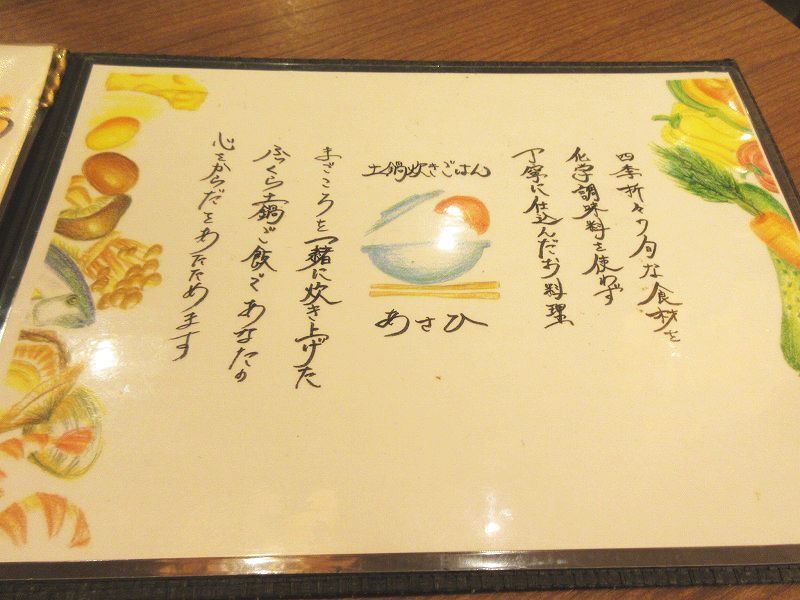 四季折々の旬な食材を
化学調味料を使わず
丁寧に仕込んだお料理
土鍋炊きごはん
あさひ
まごころを一緒に炊き上げた
ふっくら土鍋ご飯であなたの
心とからだをあたためます